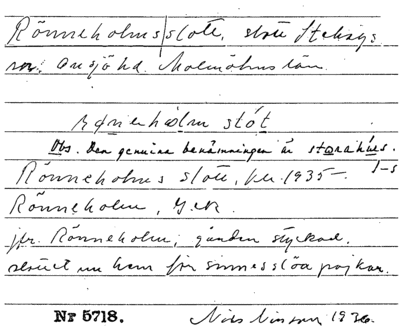 Rönneholms slott, slott Stehags
sn. Onsjö hd. Malmöhus län.
rønehòlm stót
Obs. Den genuina benämningen är storahùes.
Rönneholms slott, 1935–
Rönneholm,
jfr. Rönneholm, gården styckad.
slottet nu hem för sinnesslöa pojkar.
Nr 5718. Nils Nilsson 1936.